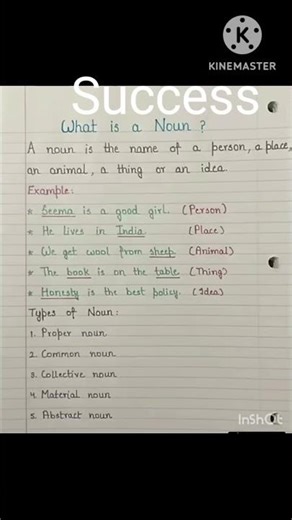 KINEMASTER
Success
What is a Noun ?
A noun is the name of a person, a place,
an animal, a thing or an idea.
Example:
* Seema is a good girl. (Person)
* He lives in India. (Place)
* We get wool from sheep. (Animal)
* The book is on the table. (Thing)
* Honesty is the best policy. (Idea)
Types of Noun:
1. Proper noun
2. Common noun
3. Collective noun
4. Material noun
5. Abstract noun
InShot